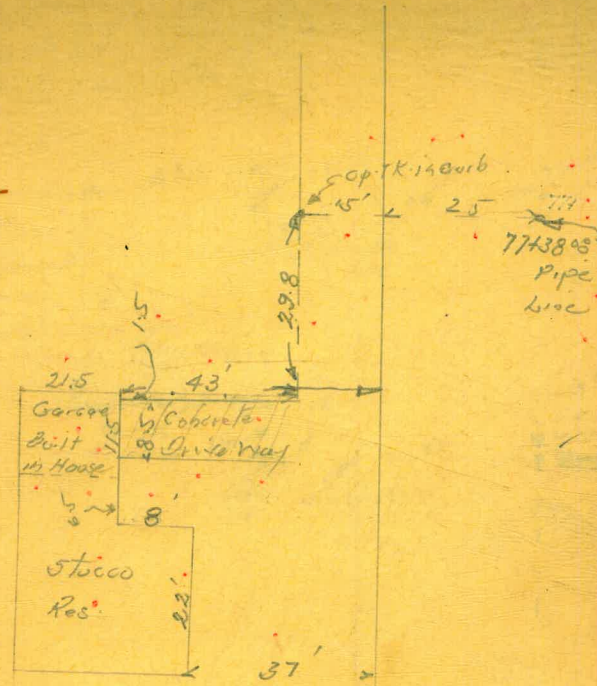 Cp. TK. in Curb
15'
25
77+38.08
Pipe
Line
29.8
1.5
21.5
43'
Garage
Built
in House
11.5
8.5
Concrete
Drive Way
8'
Stucco
Res.
22'
37'